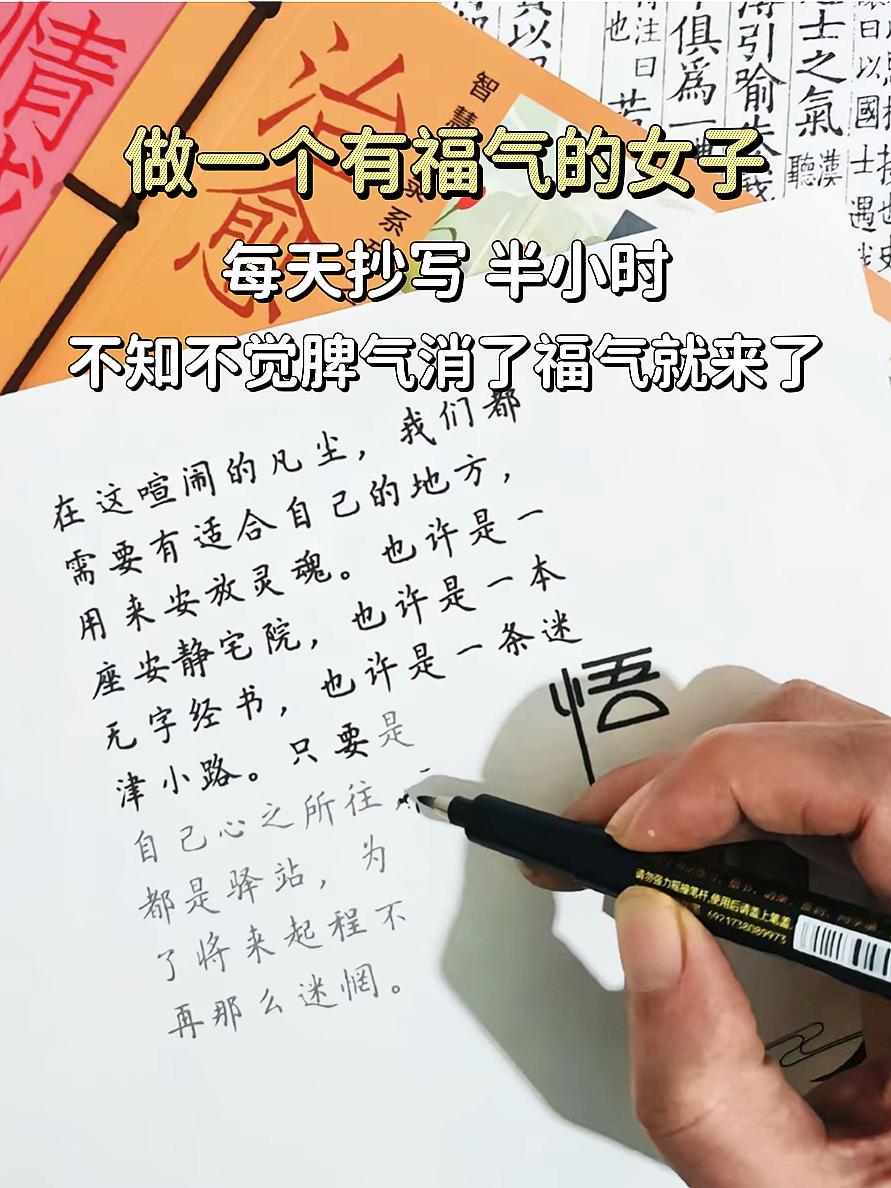 做一个有福气的女子
每天抄写 半小时
不知不觉脾气消了福气就来了
治愈
智慧
系
士之氣
引喻失
俱爲一
漢
聽
在这喧闹的凡尘，我们都
需要有适合自己的地方，
用来安放灵魂。也许是一
座安静宅院，也许是一本
无字经书，也许是一条迷
津小路。只要是
自己心之所往
都是驿站，为
了将来起程不
再那么迷惘。
悟
请勿强力捏撞笔杆,使用后请盖上笔盖
6921738089973